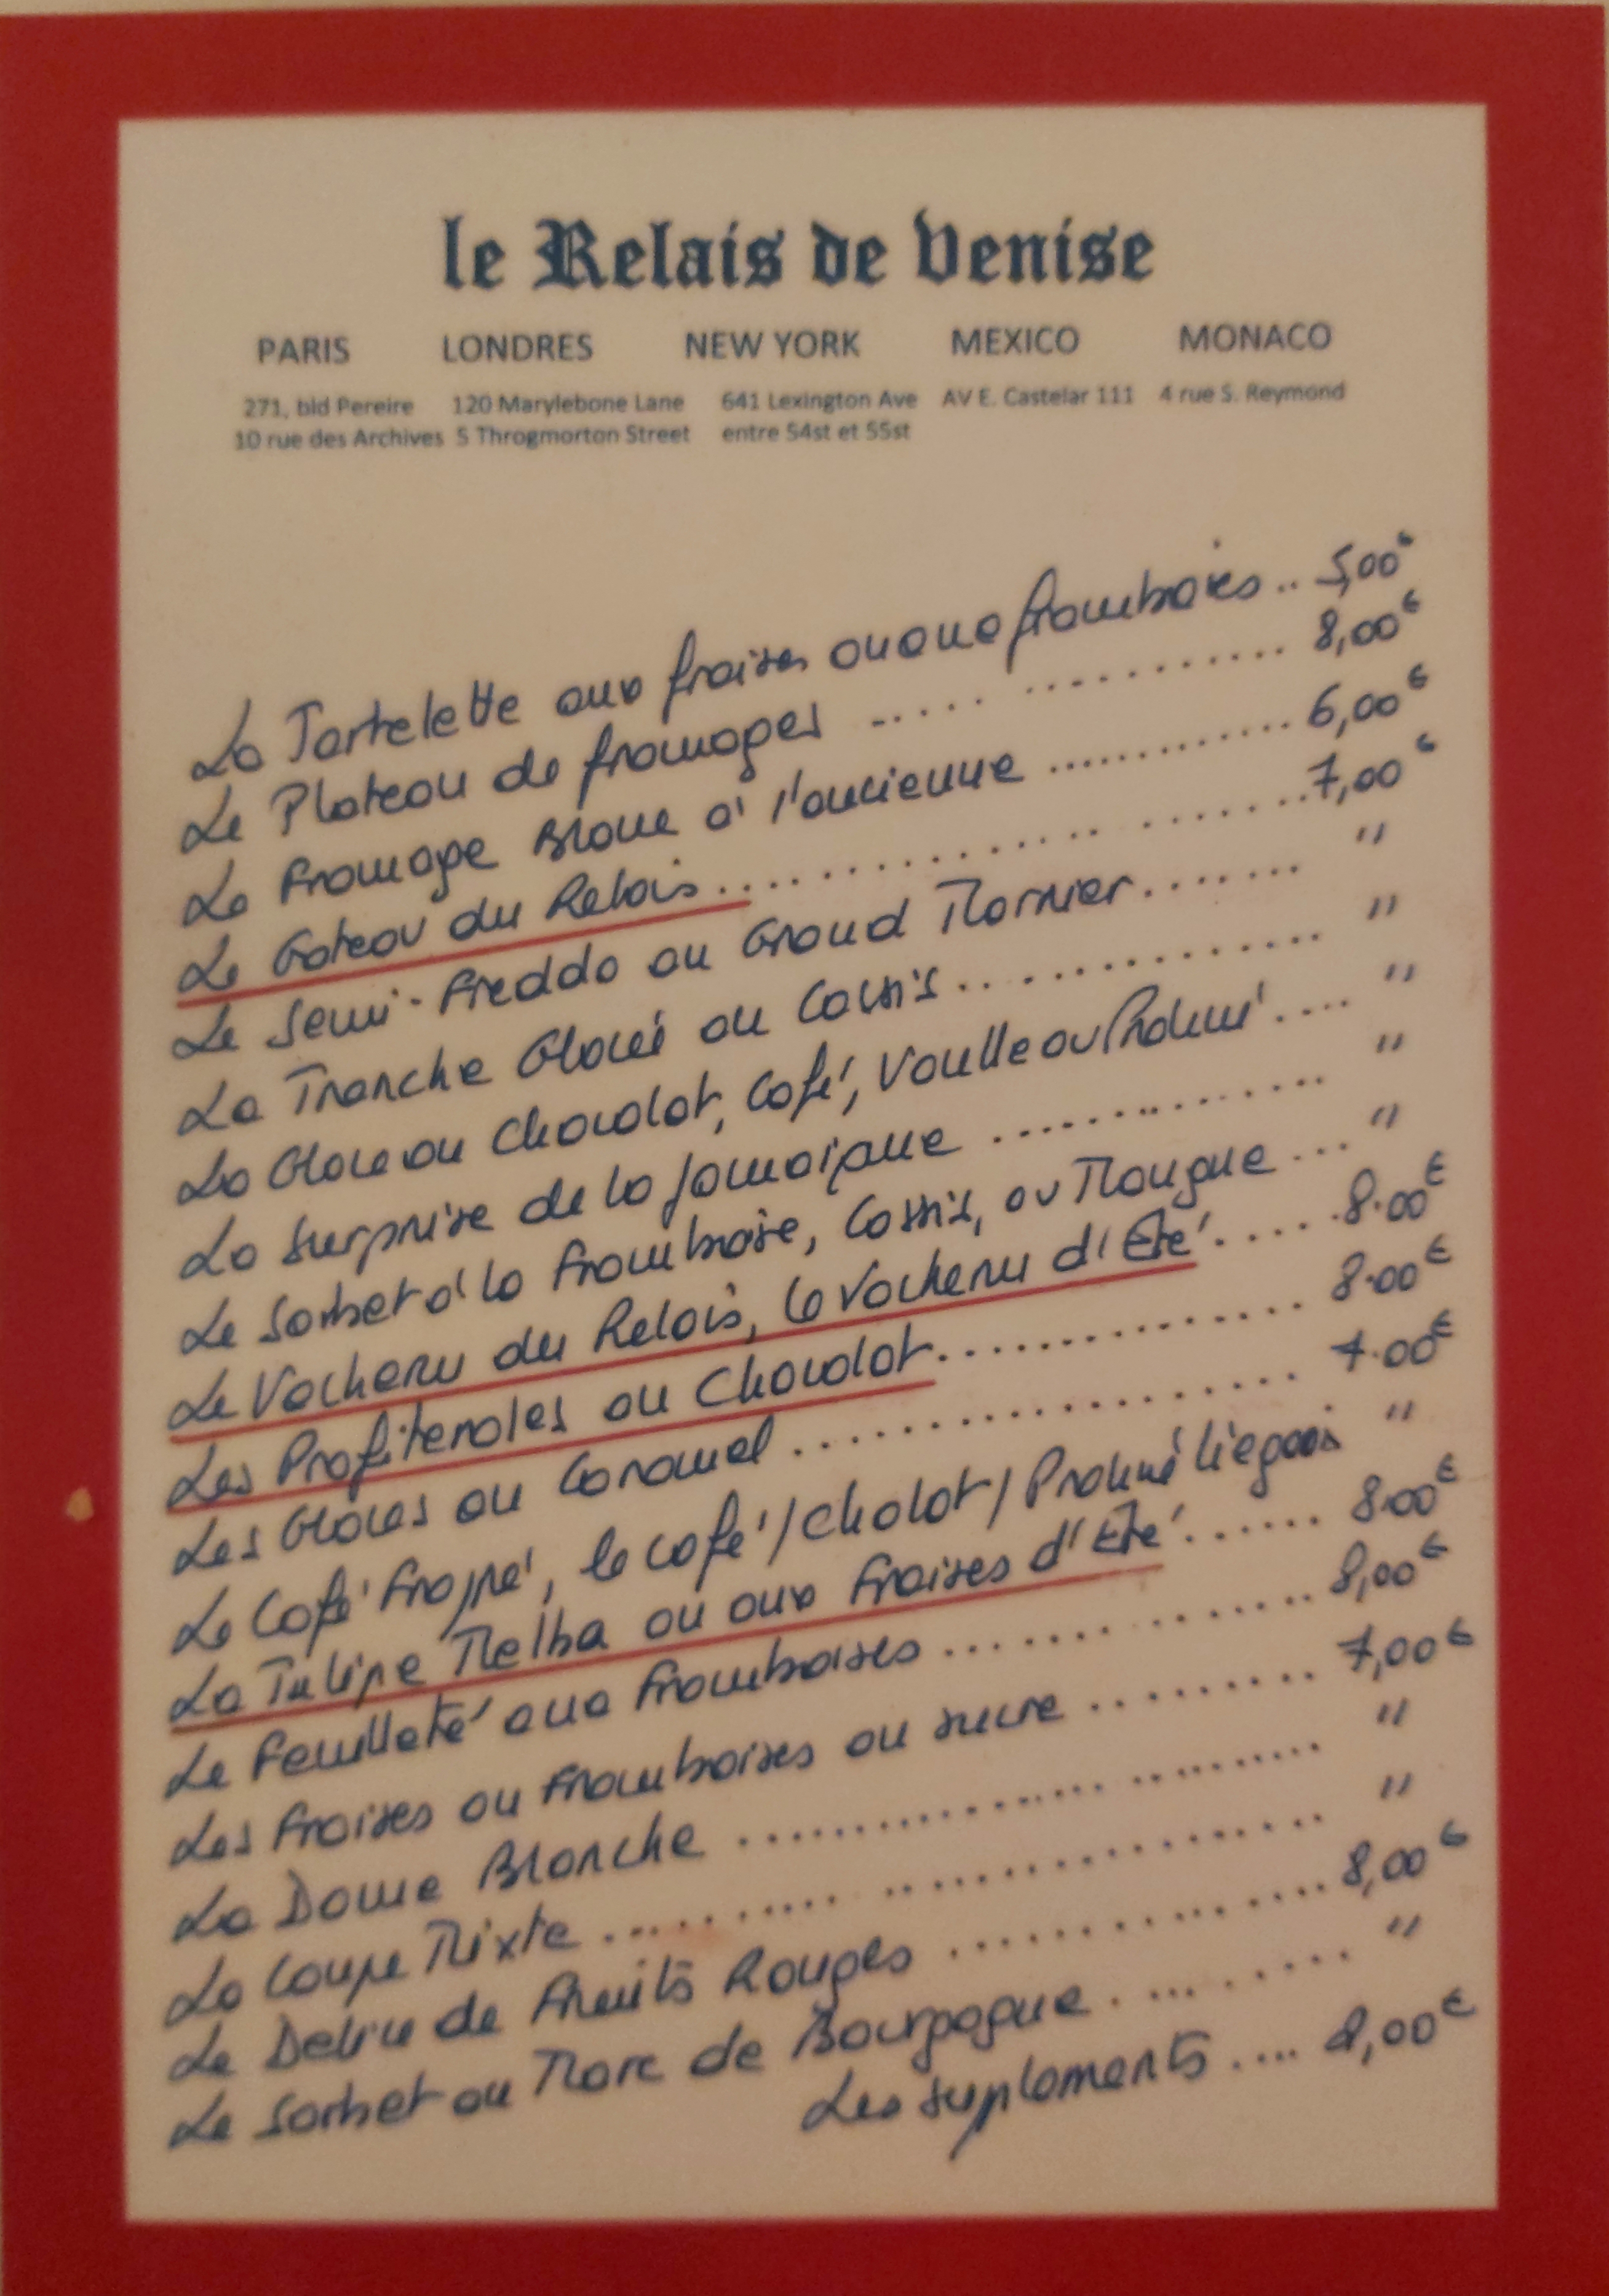 le Relais de Venise
PARIS LONDRES NEW YORK MEXICO MONACO
271, bld Pereire 120 Marylebone Lane 641 Lexington Ave AV E. Castelar 111 4 rue S. Reymond
10 rue des Archives 5 Throgmorton Street entre 54st et 55st
La Tartelette aux fraises ou aux framboises .. 5,00€
Le Plateau de fromages .......... 8,00€
Le Fromage Blanc à l'ancienne .......... 6,00€
Le Gateau du Relais .......... 7,00€
Le Semi-Freddo au Grand Marnier ....... "
La Tranche Glacée au Cassis .......... "
La Glace au Chocolat, Café, Vanille ou Praliné .... "
La Surprise de la Jamaïque .......... "
Le Sorbet à la Framboise, Cassis, ou Mangue ... "
Le Vacherin du Relais, le Vacherin d'Eté ..... 8.00€
Les Profiteroles au Chocolat .......... 8.00€
Les Glaces au Caramel .......... 7.00€
Le Café Frappé, le café/Cholat/Praliné liegeois "
La Tulipe Melba ou aux Fraises d'Eté ...... 8.00€
Le Feuilleté aux Framboises .......... 8,00€
Les Fraises ou Framboises au sucre .......... 7,00€
La Dame Blanche .......... "
La Coupe Mixte .......... "
Le Delice de Fruits Rouges .......... 8,00€
Le Sorbet au Marc de Bourgogne .......... "
Les suplements ....